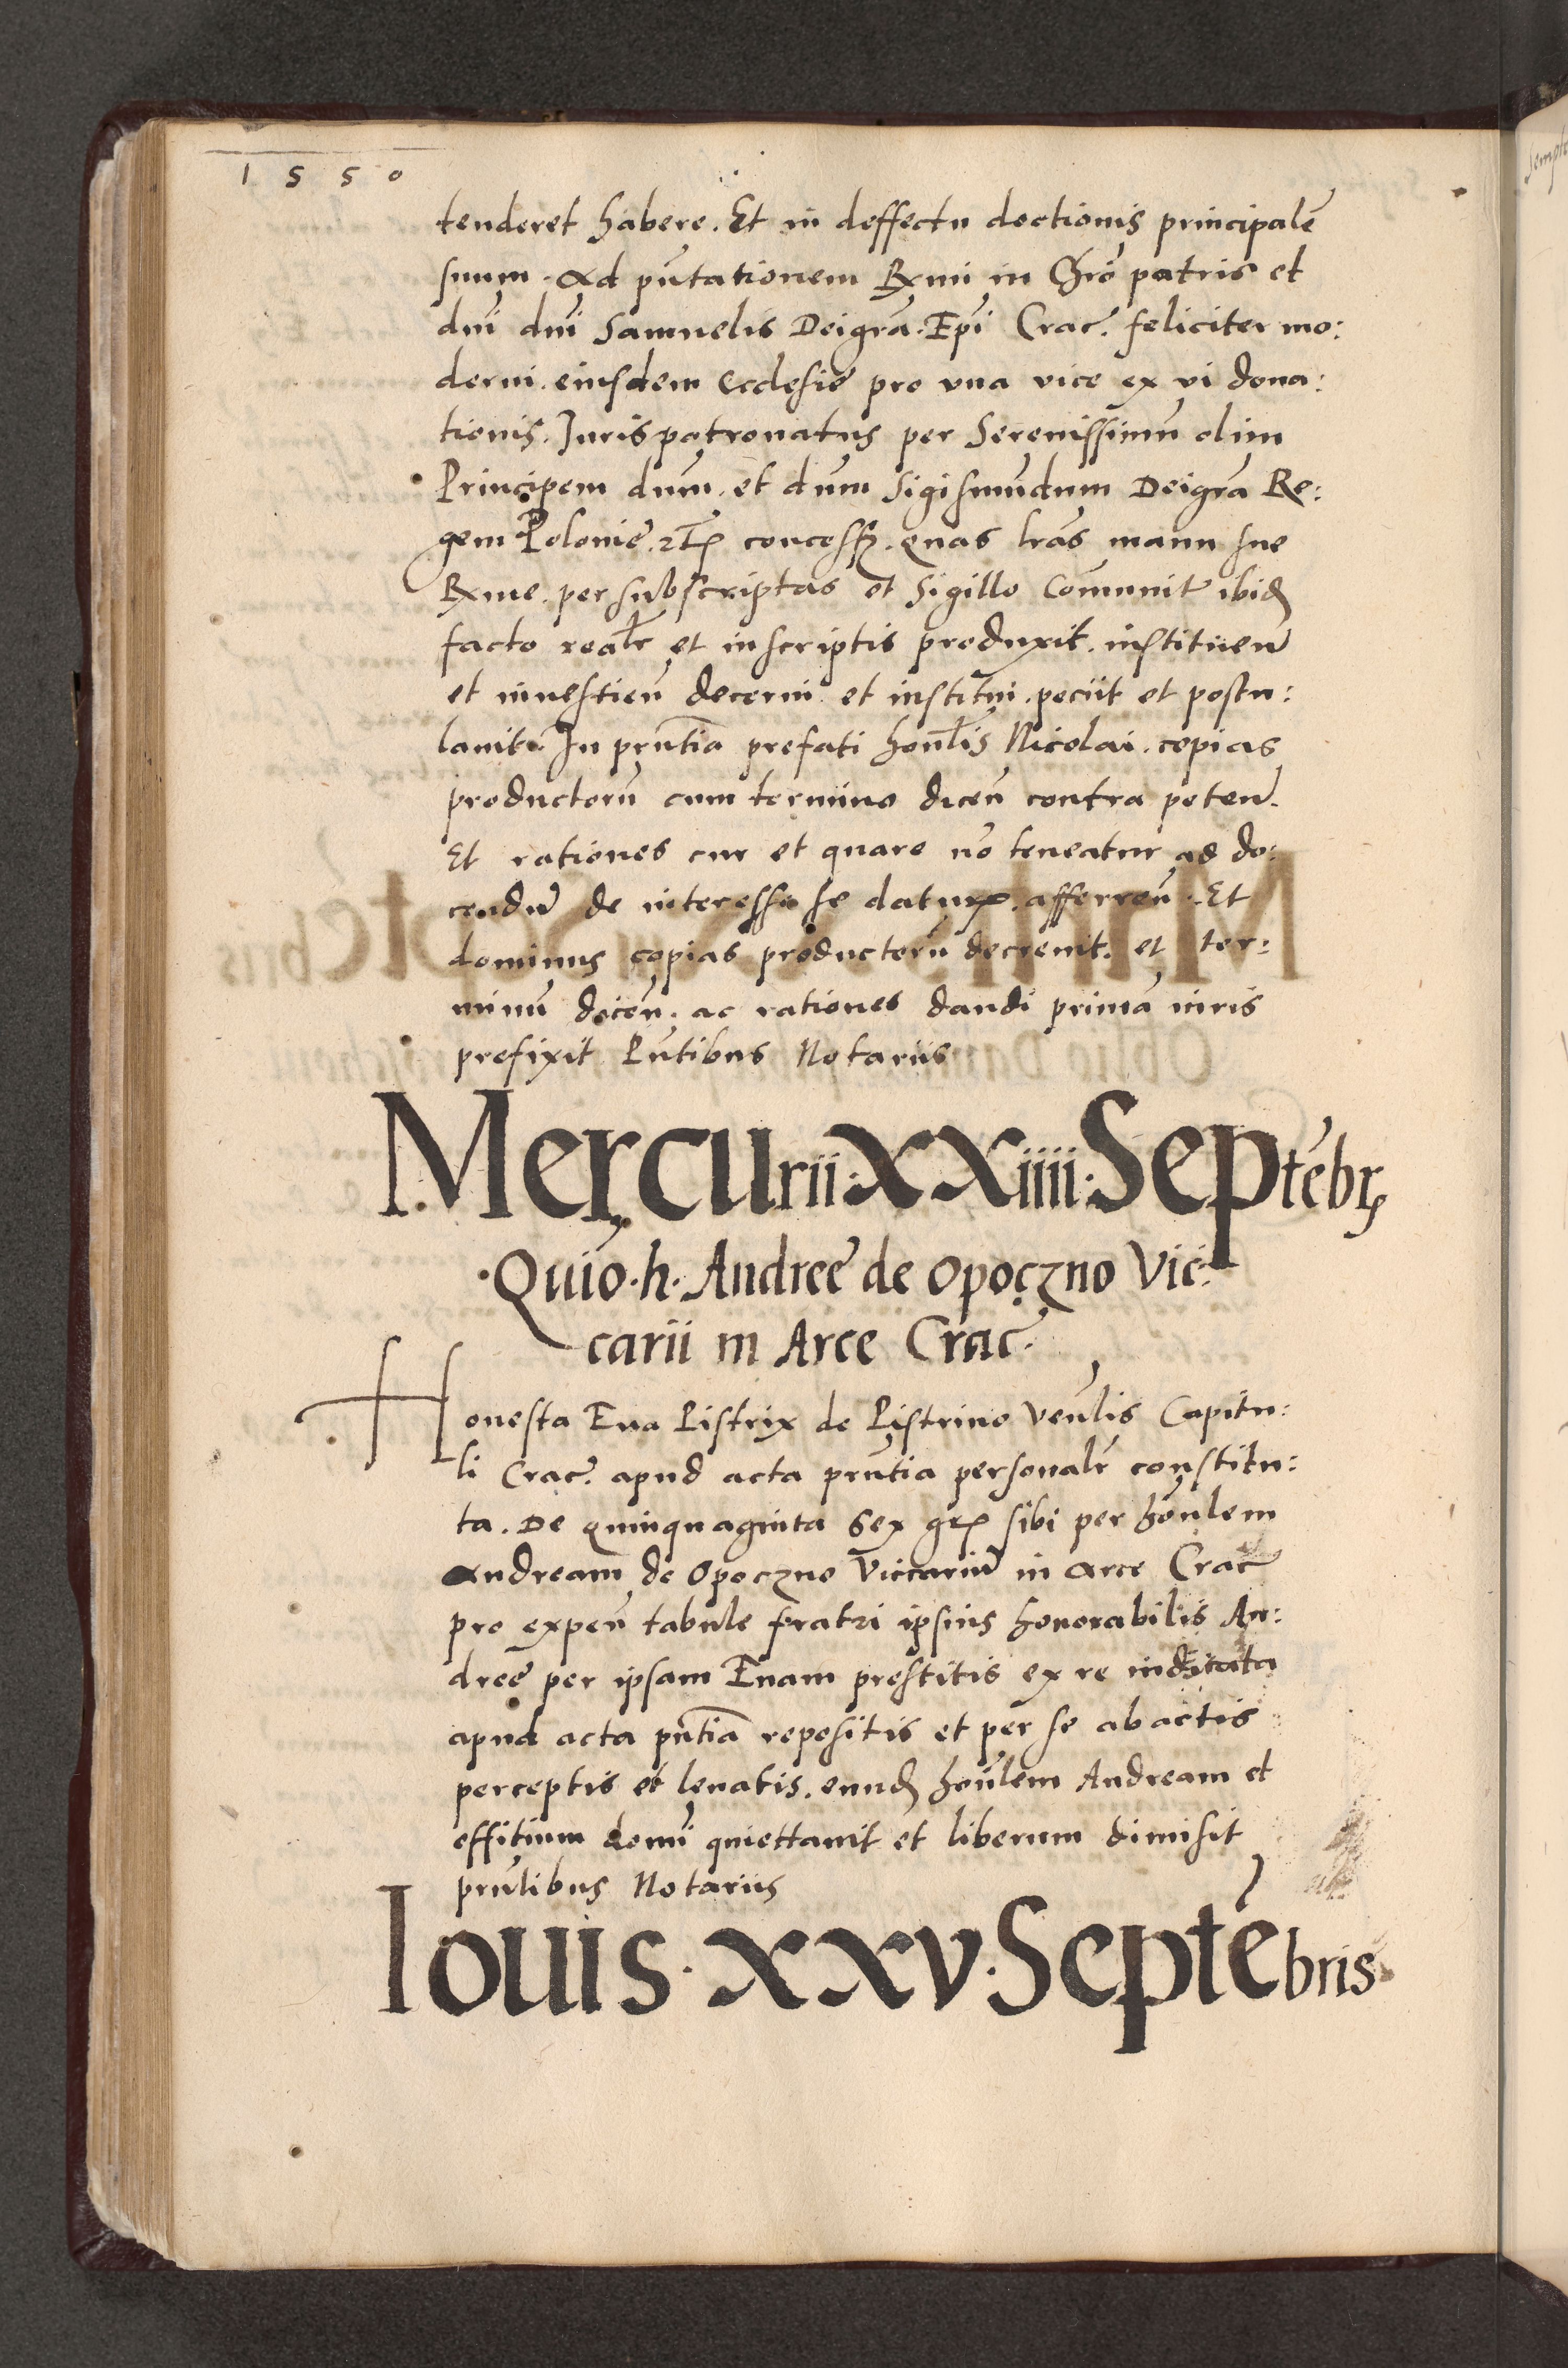 1550
tenderet habere. Et in deffectu doctionis principalē
suum. Ad pñtationem Rxmi in Chrõ patris et
dñi dñi Samuelis Deigrã. Epĩ Crac̃. feliciter mo:
derni. eiusdem Ecclesie pro vna vice ex vi dona:
tionis. Jurispatronatus per Serenissimũ olim
Principem dñm. et dñm Sigismũdum Deigrã Re:
gem Polonie. ꝛcꝭ concess̃. quas lrãs manu sue
Rxme. p. subscriptas et Sigillo Cõmunit̃ ibid̃
facto realr̃ et inscriptis produxit. instituen̄
et inuestien̄ decerni et institui. peciit et postu:
lauit. In pñtia prefati hon̄lis Nicolai. copias
productorũ cum termino dicen̄ contra peten̄.
Et rationes cur et quare nõ teneatur ad do:
cendũ de interesse se daturꝝ. afferren̄. Et
dominus copias productorũ decreuit. et ter:
minũ dicen̄. ac rationes dandi primã iuris
prefixit Pñtibus Notariis
Mercurii. xxiiii. Septẽbrꝭ
Quiõ. h. Andree de Opoczno Vic:
carii in Arce Crac̃.
Honesta Eua Pistrix de Pistrino Ven̄lis Capitu:
li Crac̃. apud acta pñtia personalr̃ constitu:
ta. De quinquaginta Sex grꝭ sibi per hon̄lem
Andream de Opoczno Viccariũ in arce Crac̃
pro expen̄ tabule fratri ipsius honorabilis An:
dree per ipsam Euam prestitis ex re iudicata
apud acta pñtia repositis et per se abactis
perceptis et leuatis. eund̃ hon̄lem Andream et
offitium domĩ quiettauit et liberum dimisit
pñtibus Notariis
Iouis. xxv. Septẽbris